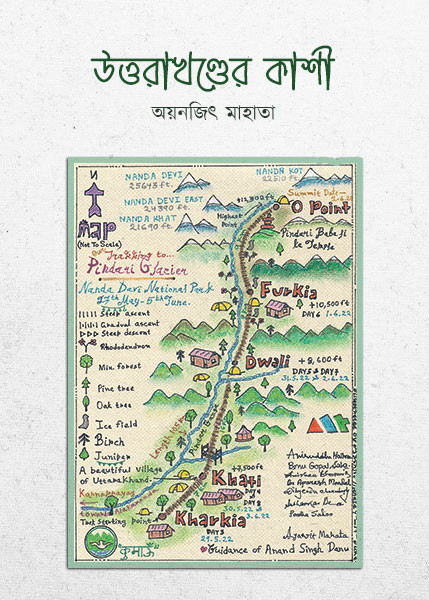 উত্তরাখণ্ডের কাশী
অয়নজিৎ মাহাতা
N
Map
(Not To Scale)
NANDA DEVI
25643 ft.
NANDA DEVI EAST
24390 ft.
NANDA KHAT
21690 ft.
NANDA KOT
22510 ft.
+12,300 ft.
Highest
Point
Summit Date-
O Point
Pindari Babaji
ka Temple
Trekking to...
Pindari Glacier
Nanda Devi National Park
27th May - 5th June.
Steep ascent
Gradual ascent
Steep descent
Rhododendrom
Mix. forest
Pine tree
Oak tree
Ice field
Birch
Juniper
A beautiful village
of Uttarakhand.
Furkia
+10,500 ft
DAY 6 1.6.22
Dwali
+8,600 ft
DAY 5 & DAY 7
31.5.22 & 2.6.22
Pindar River
+7,500 ft
Khati
DAY 4
30.5.22
3.6.22
Karnaprayag
Trek Starting Point
Kharkia
DAY 3
29.5.22
"कुमाऊँ"
Guidance of Anand Singh Danu